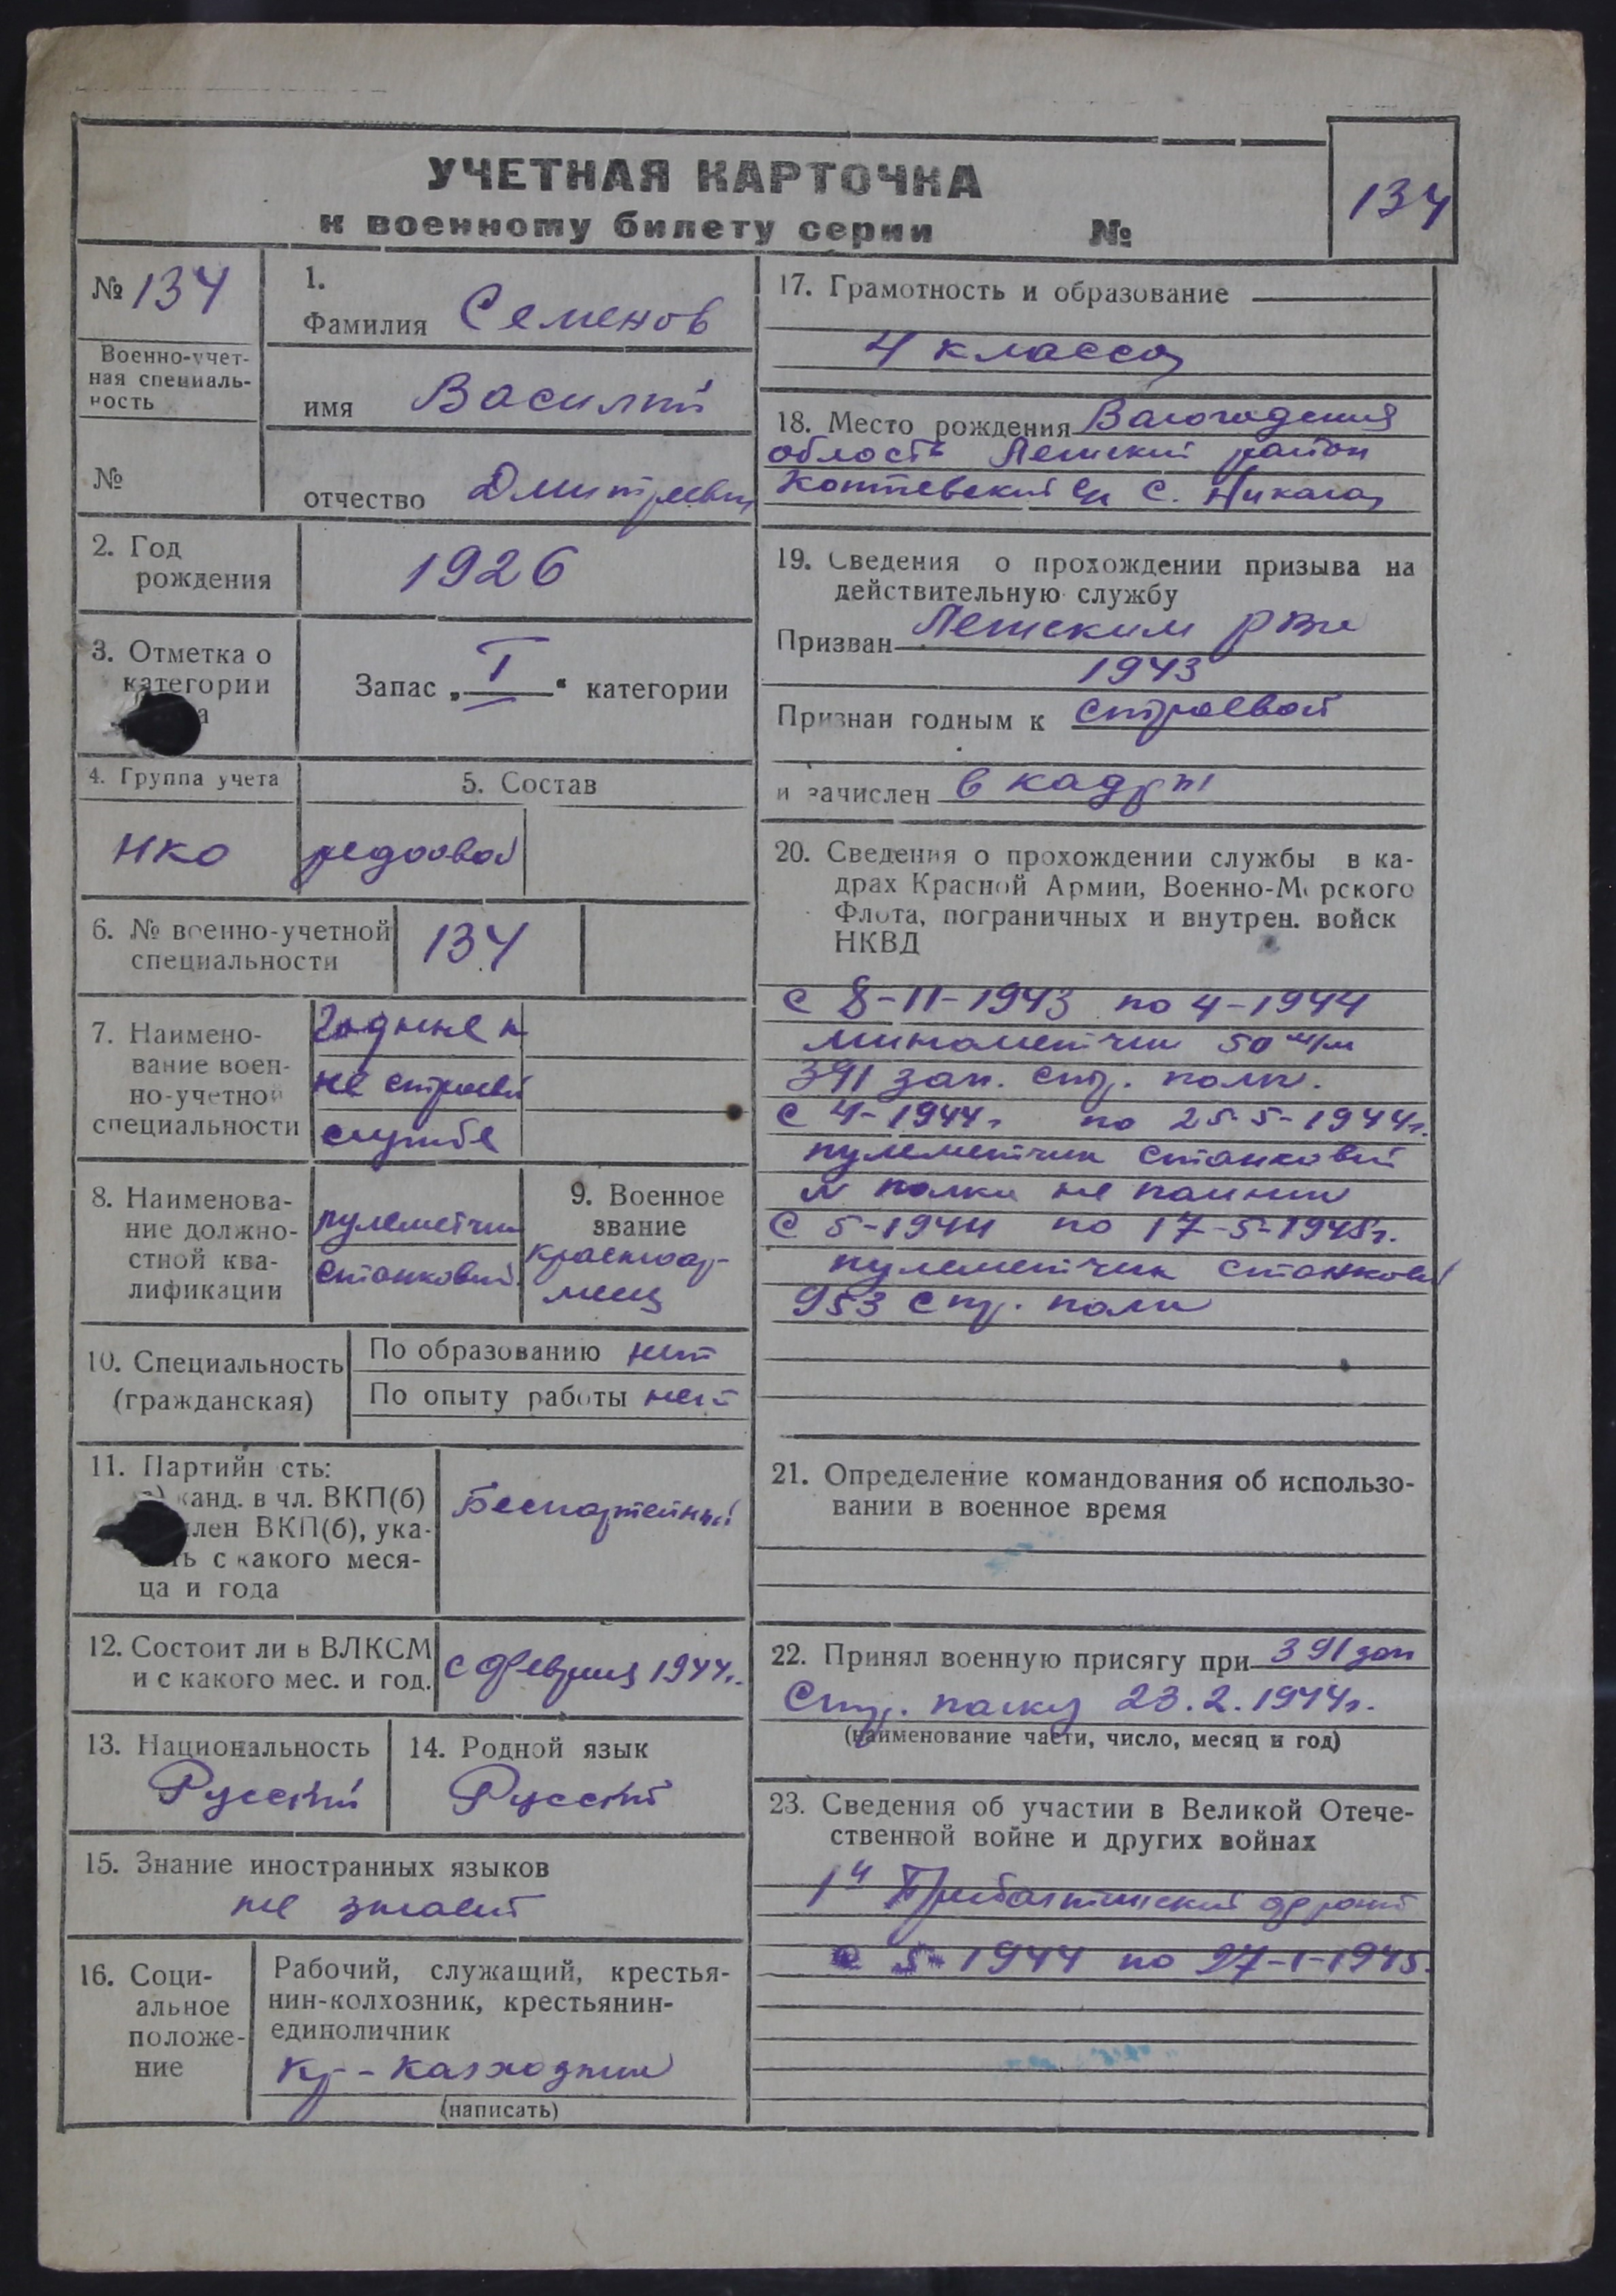 УЧЕТНАЯ КАРТОЧКА
к военному билету серии №
134
№ 134
Военно-учет-
ная специаль-
ность
№
1.
Фамилия Семенов
имя Василий
отчество Дмитриевич
2. Год
рождения
1926
3. Отметка о
категории
а
Запас „ I “ категории
4. Группа учета
НКО
5. Состав
рядовой
6. № военно-учетной
специальности
134
7. Наимено-
вание воен-
но-учетной
специальности
Годные к
не строевой
службе
8. Наименова-
ние должно-
стной ква-
лификации
пулеметчик
станковый
9. Военное
звание
красноар-
меец
10. Специальность
(гражданская)
По образованию нет
По опыту работы нет
11. Партийн сть:
канд. в чл. ВКП(б)
член ВКП(б), ука-
ть с какого меся-
ца и года
Беспартейный
12. Состоит ли в ВЛКСМ
и с какого мес. и год.
с февраля 1944г.
13. Национальность
Русский
14. Родной язык
Русский
15. Знание иностранных языков
не знает
16. Соци-
альное
положе-
ние
Рабочий, служащий, крестья-
нин-колхозник, крестьянин-
единоличник
Кр-Калхозник
(написать)
17. Грамотность и образование
4 класса
18. Место рождения
область район
с. Никола
19. Сведения о прохождении призыва на
действительную службу
Призван РВК
1943
Признан годным к строевой
и зачислен в кадры
20. Сведения о прохождении службы в ка-
драх Красной Армии, Военно-Морского
Флота, пограничных и внутрен. войск
НКВД
с 8-11-1943 по 4-1944
минометчик 50 м/м
391 зап. стр. полк.
с 4-1944г по 25-5-1944г.
пулеметчик станковый
№ полка не помнит
с 5-1944 по 17-5-1945г.
пулеметчик станковый
953 стр. полк
21. Определение командования об использо-
вании в военное время
22. Принял военную присягу при 391 зап
Стр. полку 23.2.1944г.
(наименование части, число, месяц и год)
23. Сведения об участии в Великой Отече-
ственной войне и других войнах
1й Прибалтийский фронт
с 5-1944 по 27-1-1945.